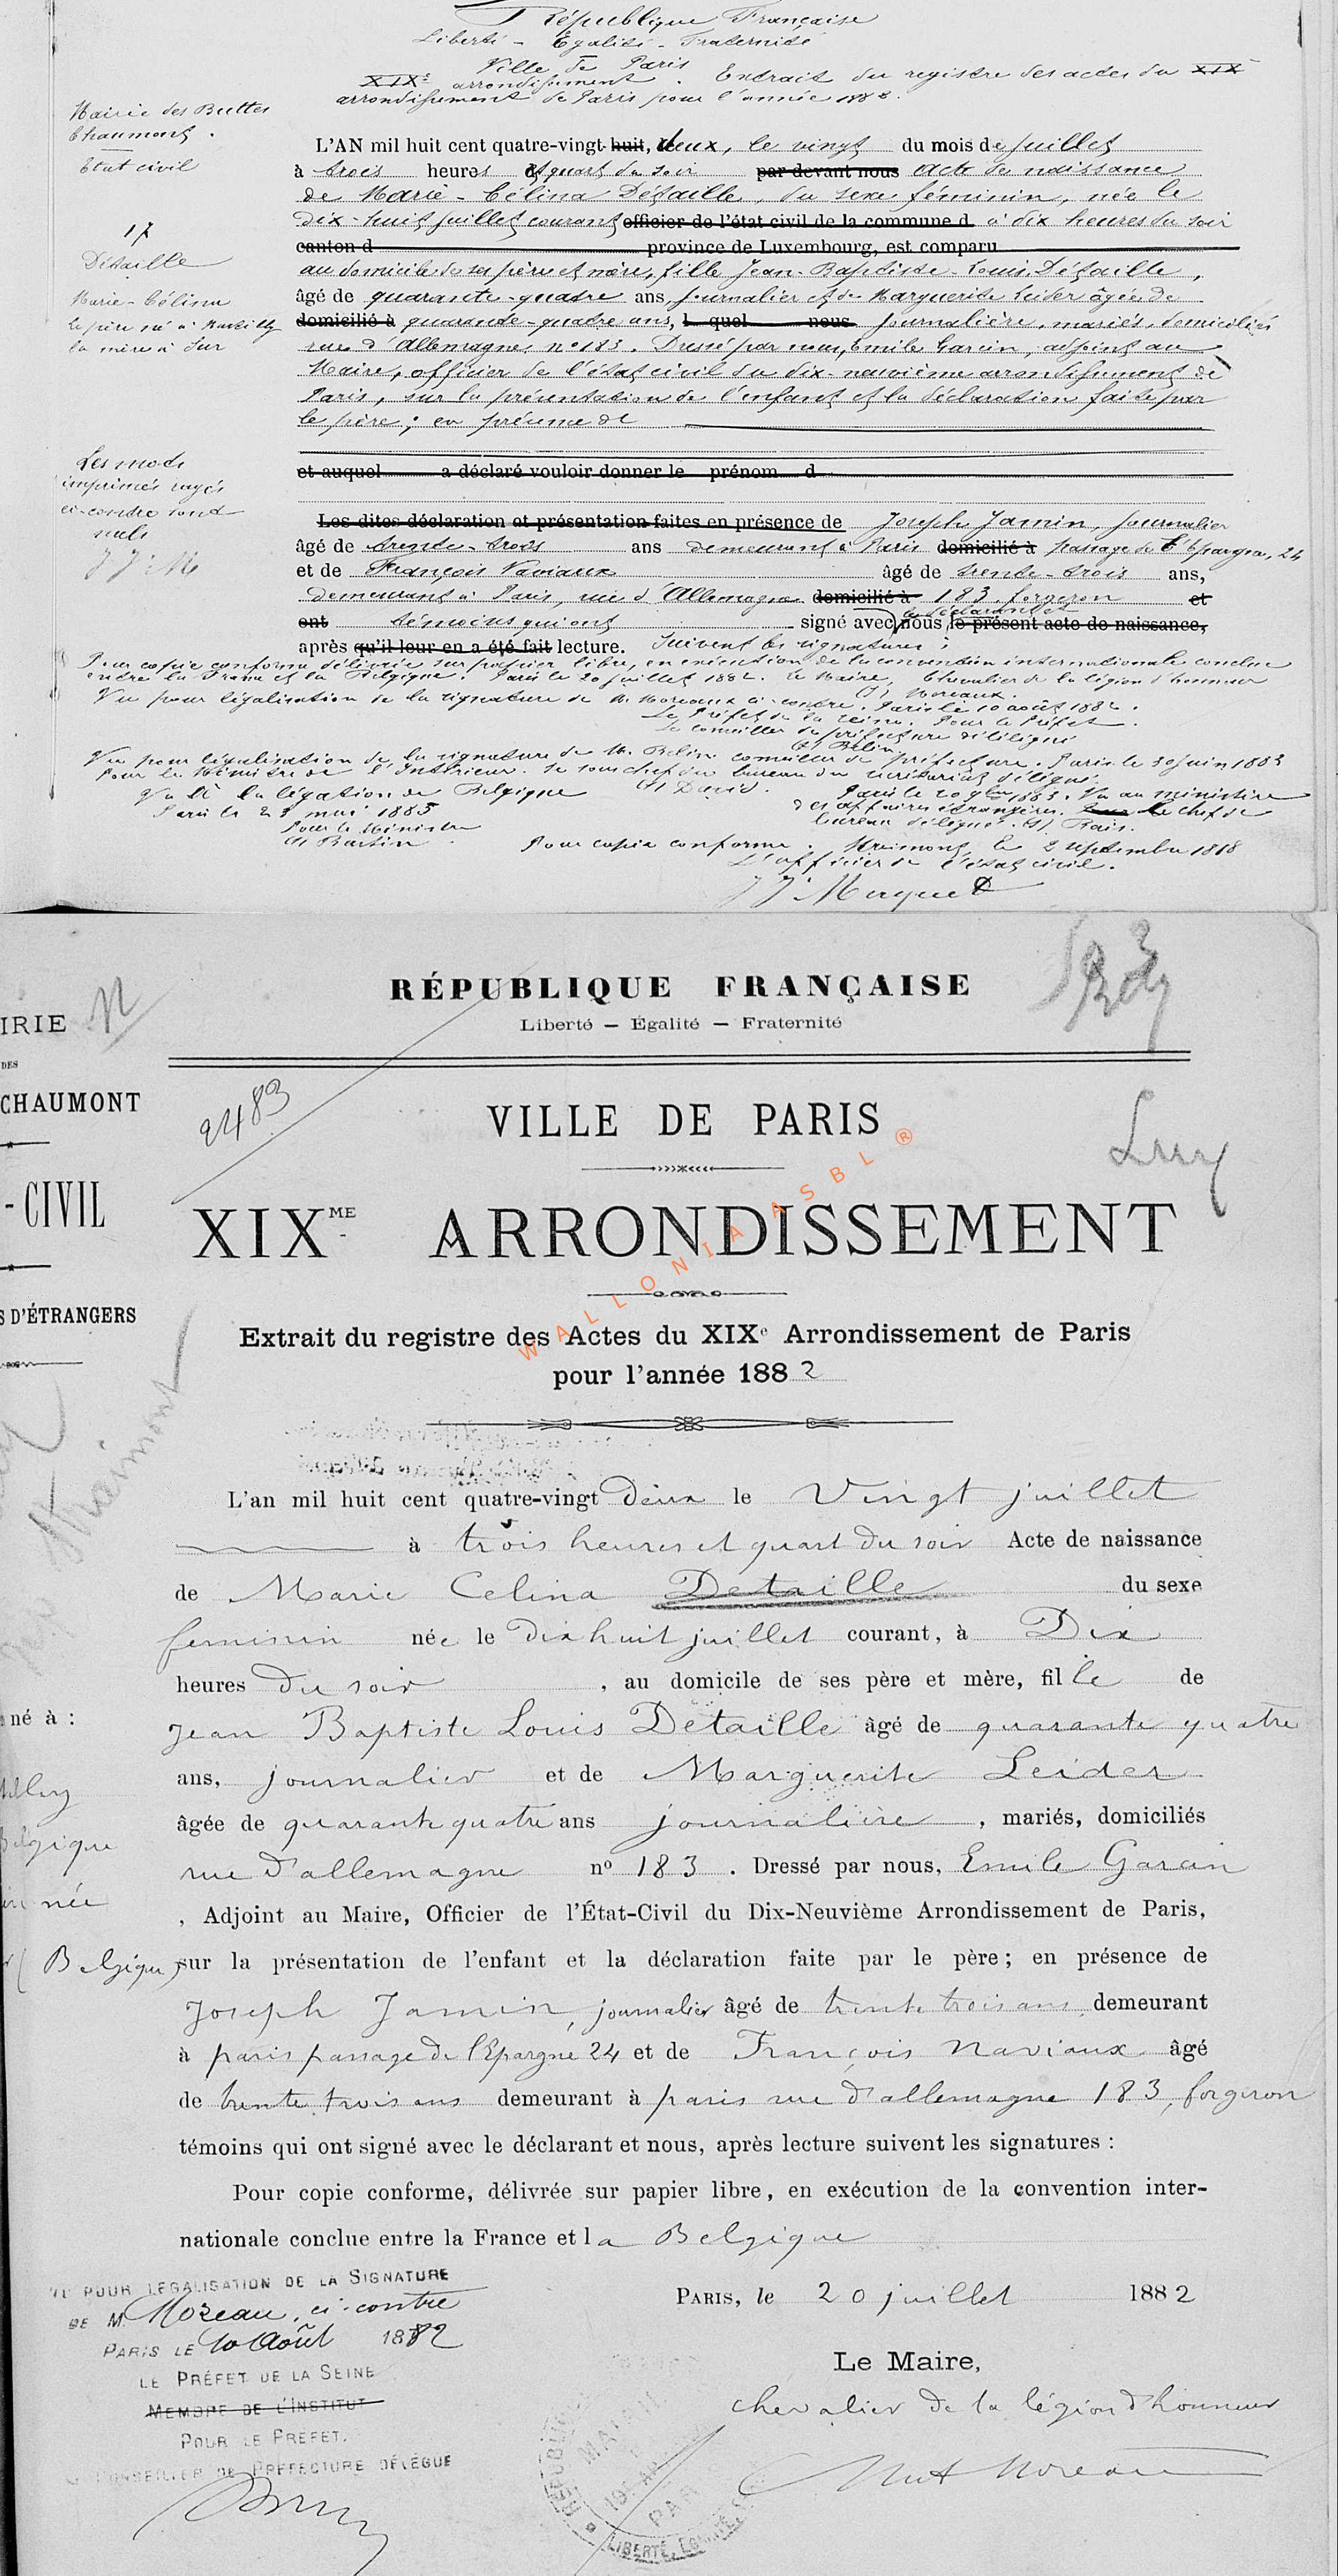 République Française
Liberté - Egalité - Fraternité
Ville de Paris
XIXe arrondissement. Extrait du registre des actes du XIXe
arrondissement de Paris pour l'année 1882.
Mairie des Buttes
Chaumont.
Etat civil
17
Détaille
Marie-Célina
le père né à
la mère à Sur
L'AN mil huit cent quatre-vingt-huit, deux, le vingt du mois de juillet
à trois heures et quart du soir par devant nous acte de naissance
de Marie-Célina Détaille, du sexe féminin, née le
dix-huit juillet courant officier de l'état civil de la commune d à dix heures du soir
canton d province de Luxembourg, est comparu
au domicile de ses père et mère, fille Jean-Baptiste-Louis Détaille,
âgé de quarante-quatre ans, journalier et de Marguerite Leider âgée de
domicilié à quarante-quatre ans, l quel nous journalière, mariés, domiciliés
rue d'Allemagne, n° 183. Dressé par nous, Emile Garcin, adjoint au
Maire, officier de l'état civil du dix-neuvième arrondissement de
Paris, sur la présentation de l'enfant et la déclaration faite par
le père; en présence de
Les mots
imprimés rayés
ci-contre sont
nuls
J J M
et auquel a déclaré vouloir donner le prénom d
Les dites déclaration et présentation faites en présence de Joseph Jamin, journalier
âgé de trente-trois ans demeurant à Paris domicilié à passage de l'Epargne, 24
et de François Naviaux âgé de trente-trois ans,
demeurant à Paris, rue d'Allemagne domicilié à 183, forgeron et
ont témoins qui ont signé avec le déclarant et nous le présent acte de naissance,
après qu'il leur en a été fait lecture. Suivent les signatures:
Pour copie conforme délivrée sur papier libre, en exécution de la convention internationale conclue
entre la France et la Belgique. Paris le 20 juillet 1882. Le Maire, Chevalier de la légion d'honneur
Moreaux.
Vu pour légalisation de la signature de M. Moreaux ci-contre. Paris le 10 août 1882.
Le Préfet de la Seine. Pour le Préfet.
Le conseiller de préfecture délégué
Belin
Vu pour légalisation de la signature de M. Belin conseiller de préfecture. Paris le 30 juin 1883
Pour le Ministre de l'Intérieur. Le sous chef du bureau du secrétariat délégué.
David.
Vu à la légation de Belgique
Paris le 23 mai 1885
Pour le Ministre
Bastin
Paris le 20 1883. Vu au ministère
des affaires étrangères. Le chef de
bureau délégué.
Pour copie conforme. le 2 septembre 1888
L'officier de l'état civil.
RÉPUBLIQUE FRANÇAISE
Liberté — Egalité — Fraternité
IRIE
DES
CHAUMONT
-CIVIL
S D'ÉTRANGERS
2483
VILLE DE PARIS
XIXME ARRONDISSEMENT
WALLONIA ASBL ®
Extrait du registre des Actes du XIXe Arrondissement de Paris
pour l'année 1882
L'an mil huit cent quatre-vingt deux le Vingt juillet
à trois heures et quart du soir Acte de naissance
de Marie Celina Detaille du sexe
feminin née le dix huit juillet courant, à Dix
heures du soir, au domicile de ses père et mère, fille de
Jean Baptiste Louis Détaille âgé de quarante quatre
ans, journalier et de Marguerite Leider
âgée de quarante quatre ans journalière, mariés, domiciliés
rue d'allemagne no 183. Dressé par nous, Emile Garcin
, Adjoint au Maire, Officier de l'État-Civil du Dix-Neuvième Arrondissement de Paris,
sur la présentation de l'enfant et la déclaration faite par le père; en présence de
Joseph Jamin, journalier âgé de trente trois ans demeurant
à paris passage de l'Epargne 24 et de François Naviaux âgé
de trente trois ans demeurant à paris rue d'allemagne 183, forgeron
témoins qui ont signé avec le déclarant et nous, après lecture suivent les signatures :
né à :
Belgique
née
Belgique
Pour copie conforme, délivrée sur papier libre, en exécution de la convention inter-
nationale conclue entre la France et la Belgique
PARIS, le 20 juillet 1882
Le Maire,
chevalier de la légion d'honneur
Moreau
VU POUR LEGALISATION DE LA SIGNATURE
DE M. Moreau, ci-contre
PARIS LE 10 Août 1882
LE PRÉFET DE LA SEINE
MEMBRE DE L'INSTITUT
POUR LE PREFET.
CONSEILLER DE PREFECTURE DÉLÉGUÉ